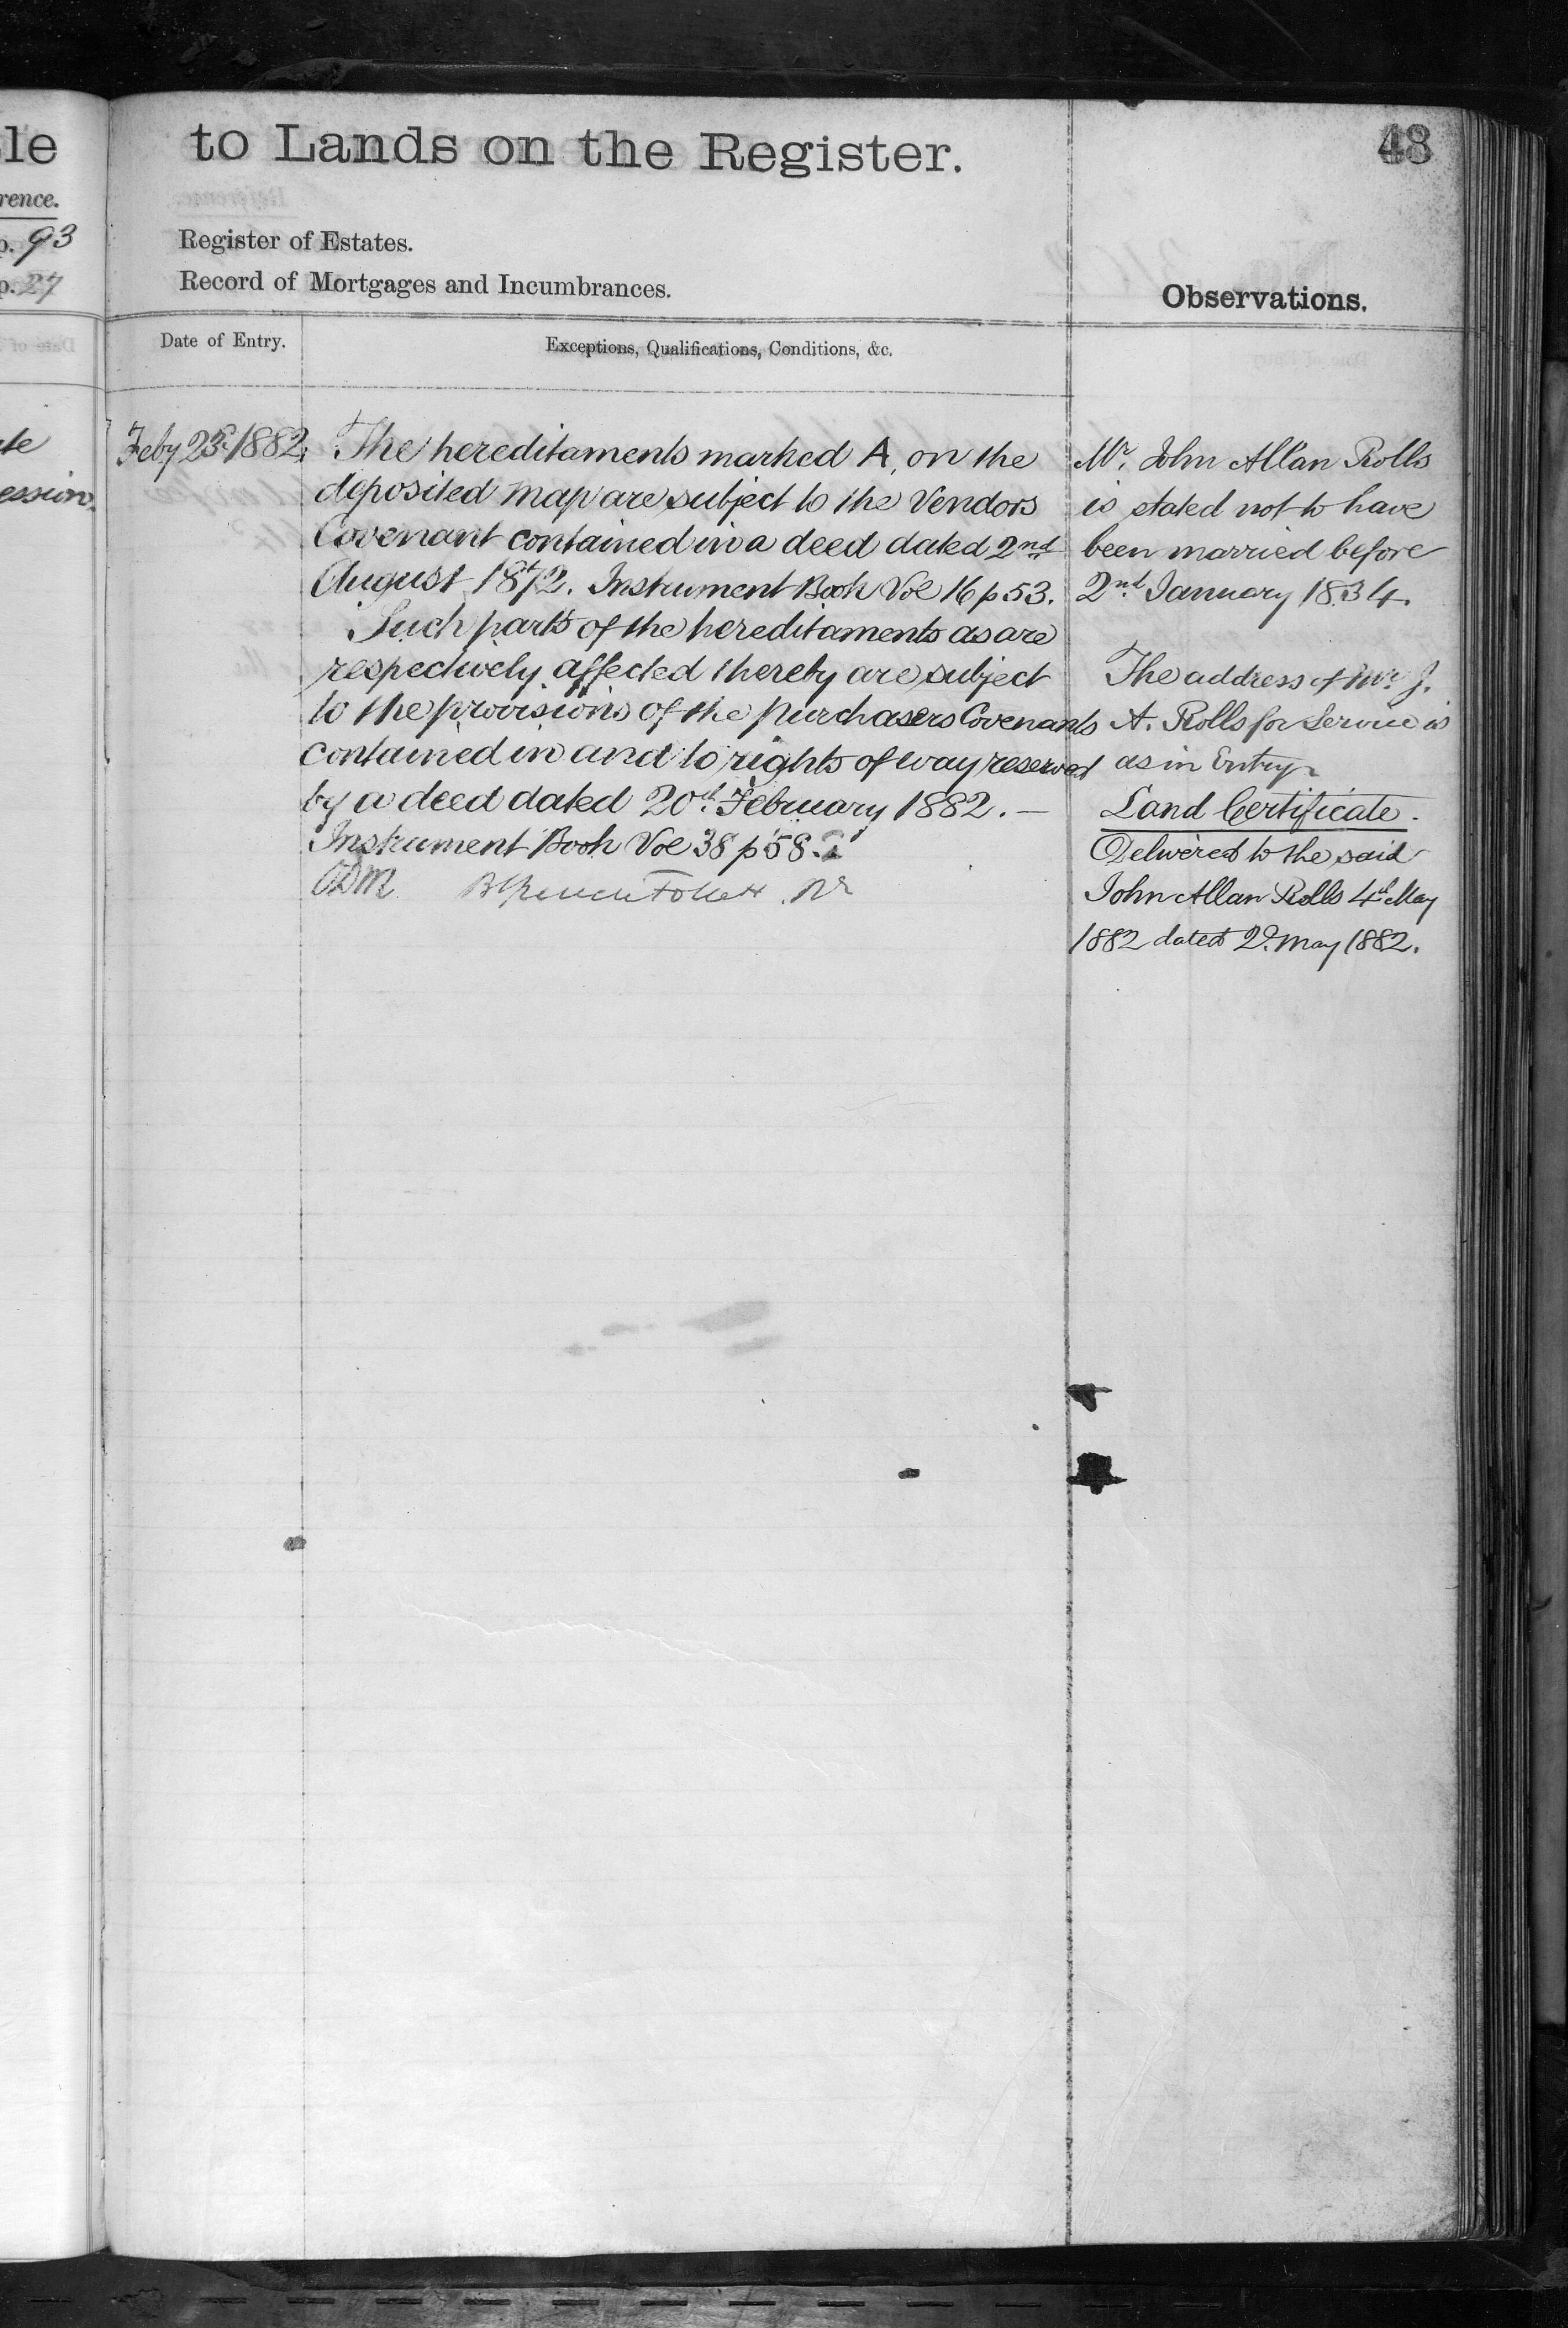 le
to Lands on the Register.
48
rence.
p. 93
p. 27
Register of Estates.
Record of Mortgages and Incumbrances.
Observations.
Date of Entry.
Exceptions, Qualifications, Conditions, &c.
ession.
Feby 23d 1882.
The hereditaments marked A, on the
deposited map are subject to the Vendors
Covenant contained in a deed dated 2nd
August 1872. Instrument Book Vol 16 p 53.
Such parts of the hereditaments as are
respectively affected thereby are subject
to the provisions of the purchasers Covenants
contained in and to rights of way reserved
by a deed dated 20th February 1882. —
Instrument Book Vol 38 p 58.
Mr. John Allan Rolls
is stated not to have
been married before
2nd January 1834.
The address of Mr. J.
A. Rolls for Service is
as in Entry
Land Certificate.
Delivered to the said
John Allan Rolls 4th May
1882 dated 2d. May 1882.